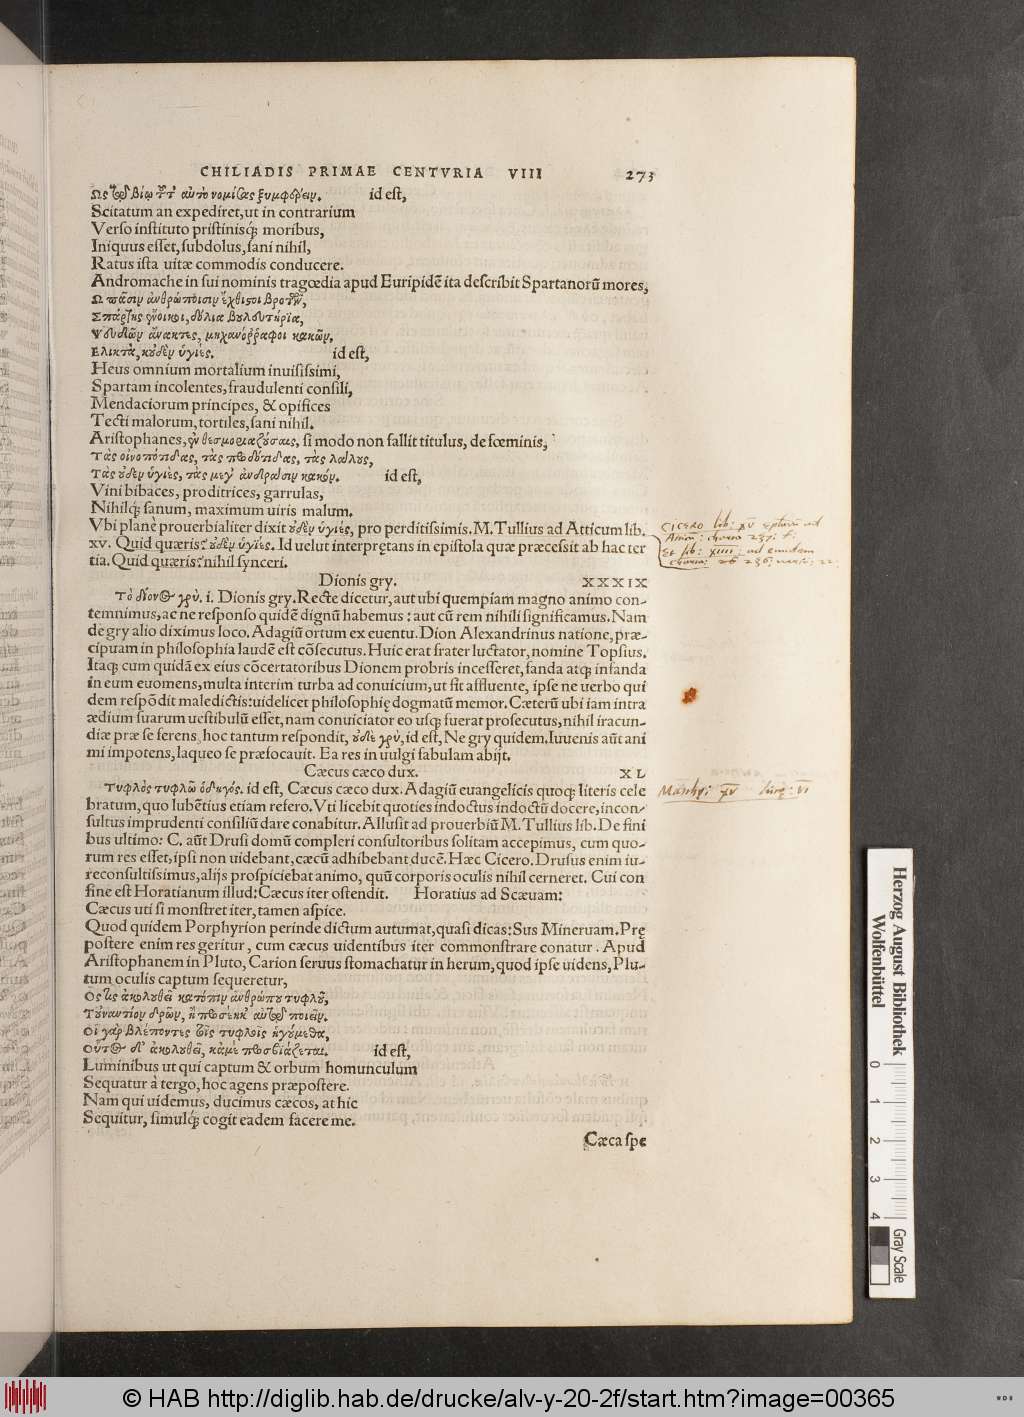 CHILIADIS PRIMAE CENTVRIA VIII 273
Ως βίῳ αὐτὸ νομίσας ξυμφέρειν. id est,
Scitatum an expediret,ut in contrarium
Verso instituto pristinisq́; moribus,
Iniquus esset,subdolus,sani nihil,
Ratus ista uitæ commodis conducere.
Andromache in sui nominis tragœdia apud Euripidē ita describit Spartanorū mores,
Ω πᾶσιν ἀνθρώποισιν ἔχθιστοι βροτῶν,
Σπάρτης ἔνοικοι, δόλια βουλευτήρια,
Ψευδῶν ἄνακτες, μηχανορράφοι κακῶν.
Ελικτὰ, κοὐδὲν ὑγιές. id est,
Heus omnium mortalium inuisissimi,
Spartam incolentes,fraudulenti consili,
Mendaciorum principes, & opifices
Tecti malorum,tortiles,sani nihil.
Aristophanes,ἐν θεσμοφοριαζούσαις, si modo non fallit titulus, de fœminis,
Τὰς οἰνοπότιδας, τὰς προδότιδας, τὰς λάλους,
Τὰς οὐδὲν ὑγιὲς, τὰς μέγ' ἀνδράσιν κακόν. id est,
Vini bibaces, proditrices, garrulas,
Nihilq́; sanum, maximum uiris malum.
Vbi planè prouerbialiter dixit οὐδὲν ὑγιὲς, pro perditissimis. M. Tullius ad Atticum lib.
xv. Quid quæris? οὐδὲν ὑγιὲς. Id uelut interprętans in epistola quæ præcessit ab hac ter
tia. Quid quæris? nihil synceri.
CICERO lib: xv ad
Et lib: xiiii: ad eundem
Dionis gry. XXXIX
Τὸ δίωνος γρύ. i. Dionis gry. Recte dicetur, aut ubi quempiam magno animo con-
temnimus, ac ne responso quidē dignū habemus: aut cū rem nihili significamus. Nam
de gry alio diximus loco. Adagiū ortum ex euentu. Dion Alexandrinus natione, præ-
cipuam in philosophia laudē est cōsecutus. Huic erat frater luctator, nomine Topsius.
Itaq; cum quidā ex eius cōcertatoribus Dionem probris incesseret, fanda atq; infanda
in eum euomens, multa interim turba ad conuicium, ut fit affluente, ipse ne uerbo qui
dem respōdit maledictis: uidelicet philosophię dogmatū memor. Cæterū ubi iam intra
ædium suarum uestibulū esset, nam conuiciator eo usq; fuerat prosecutus, nihil iracun-
diæ præ se ferens hoc tantum respondit, οὐδὲ γρύ, id est, Ne gry quidem. Iuuenis aūt ani
mi impotens, laqueo se præfocauit. Ea res in uulgi fabulam abijt.
Cæcus cæco dux. XL
Τυφλὸς τυφλῷ ὁδηγός. id est, Cæcus cæco dux. Adagiū euangelicis quoq; literis cele
bratum, quo lubētius etiam refero. Vti licebit quoties indoctus indoctū docere, incon-
sultus imprudenti consiliū dare conabitur. Allusit ad prouerbiū M. Tullius lib. De fini
bus ultimo: C. aūt Drusi domū compleri consultoribus solitam accepimus, cum quo-
rum res esset, ipsi non uidebant, cæcū adhibebant ducē. Hæc Cicero. Drusus enim iu-
reconsultissimus, alijs prospiciebat animo, quū corporis oculis nihil cerneret. Cui con
fine est Horatianum illud: Cæcus iter ostendit. Horatius ad Scæuam:
Cæcus uti si monstret iter, tamen aspice.
Quod quidem Porphyrion perinde dictum autumat, quasi dicas: Sus Mineruam. Prę
postere enim res geritur, cum cæcus uidentibus iter commonstrare conatur. Apud
Aristophanem in Pluto, Carion seruus stomachatur in herum, quod ipse uidens, Plu-
tum oculis captum sequeretur,
Ος τις ἀκολουθεῖ κατόπιν ἀνθρώπου τυφλοῦ,
Τοὐναντίον δρῶν, ἢ προσῆκ' αὐτῷ ποιεῖν.
Οἱ γὰρ βλέποντες τοῖς τυφλοῖς ἡγούμεθα,
Οὗτος δ' ἀκολουθεῖ, κἀμὲ προσβιάζεται. id est,
Luminibus ut qui captum & orbum homunculum
Sequatur à tergo, hoc agens præpostere.
Nam qui uidemus, ducimus cæcos, at hic
Sequitur, simulq́; cogit eadem facere me.
Cæca spe
Matthęi: xv
Herzog August Bibliothek
Wolfenbüttel
0 1 2 3 4
Gray Scale
© HAB http://diglib.hab.de/drucke/alv-y-20-2f/start.htm?image=00365